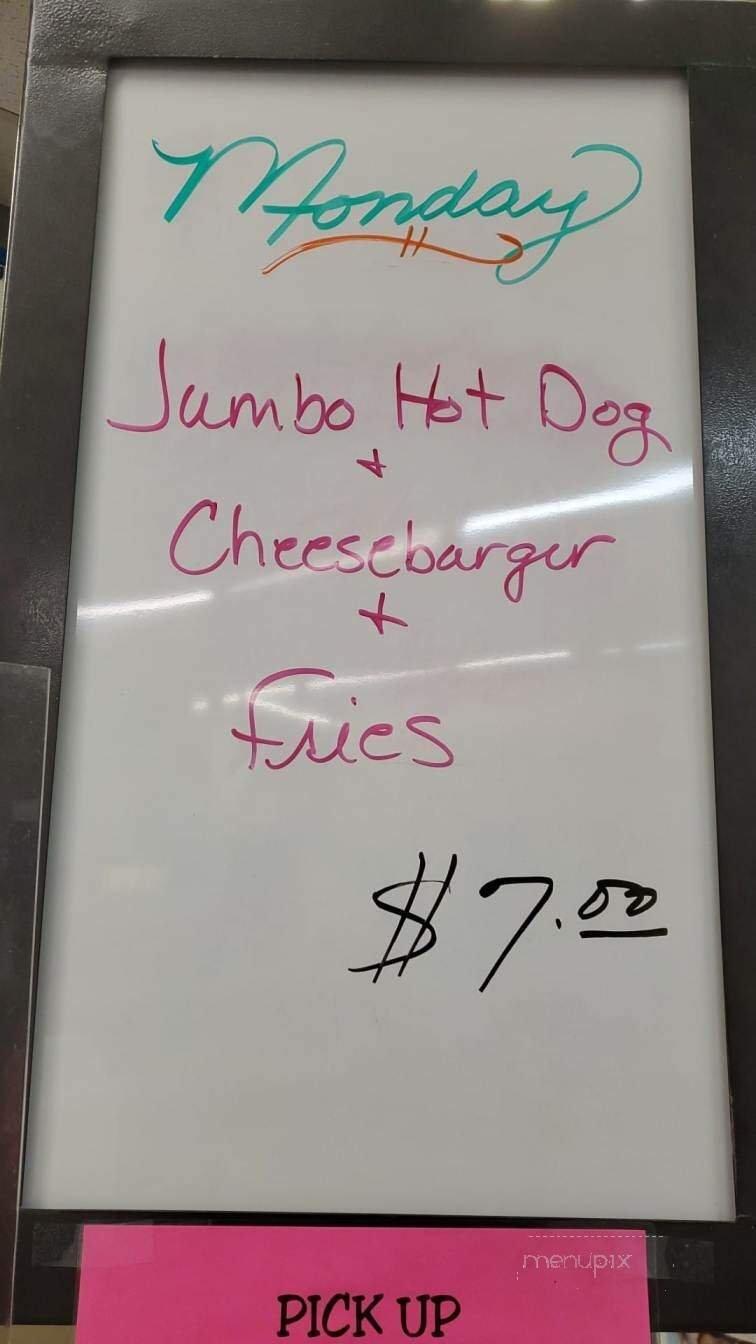 Monday
Jumbo Hot Dog
+
Cheeseburger
+
Fries
$7.00
menupix
PICK UP